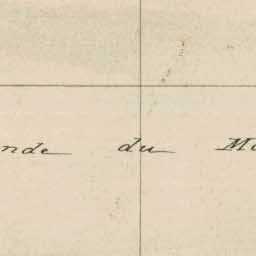 nde du M